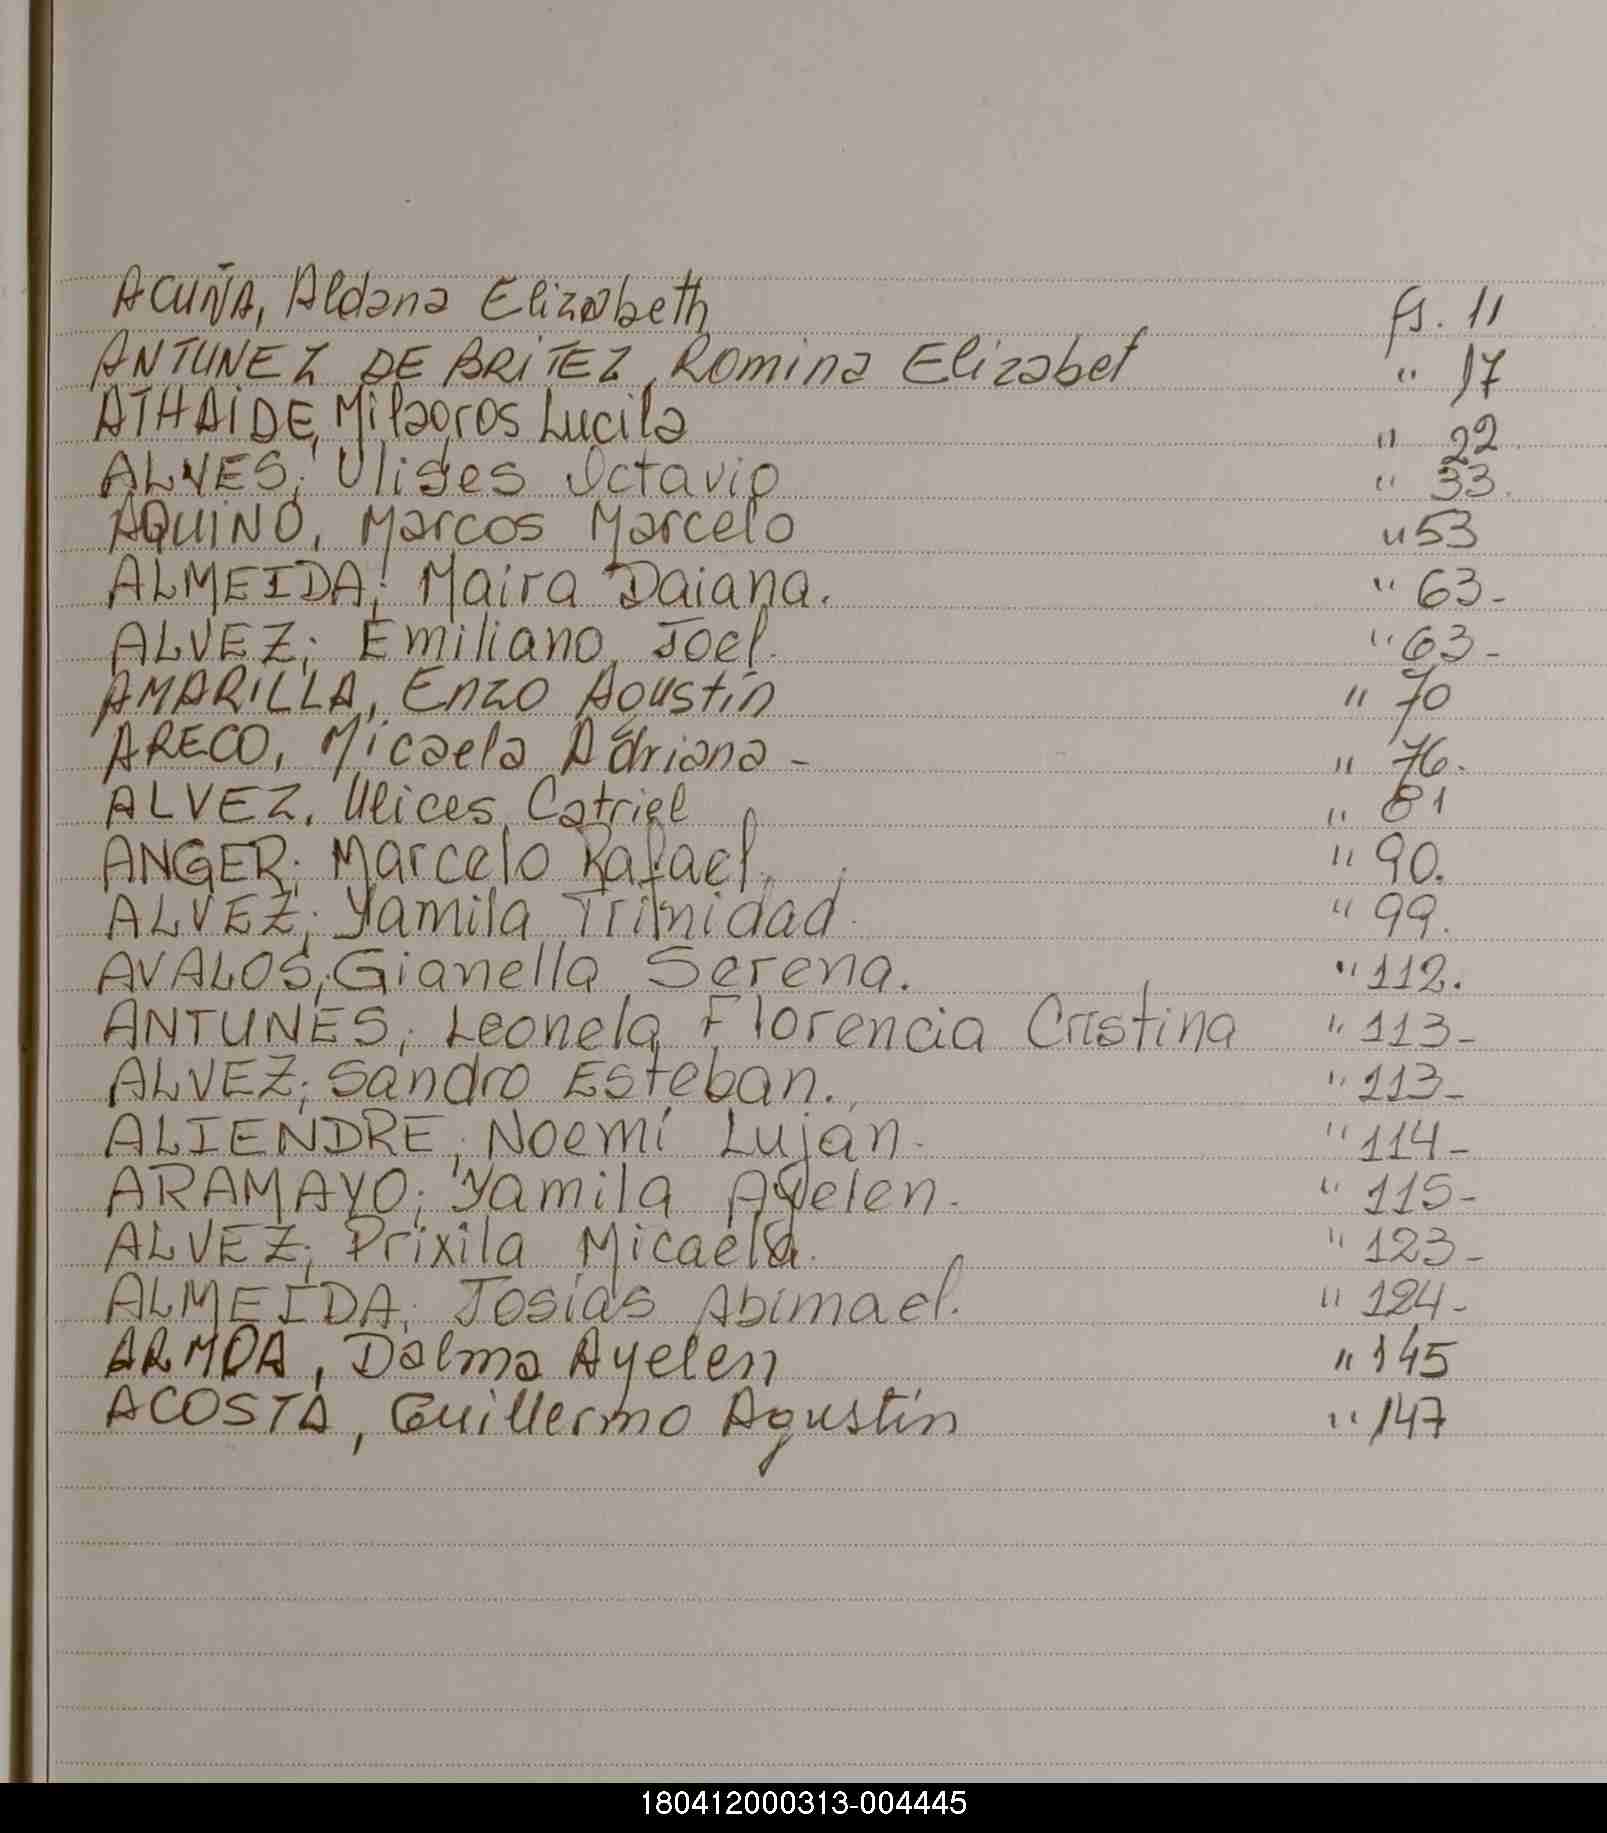 ACUÑA, Aldana Elizabeth fs. 11
ANTUNEZ DE BRITEZ, Romina Elizabet " 17
ATHAIDE, Milagros Lucila " 22
ALVES; Ulises Octavio " 33.
AQUINO, Marcos Marcelo " 53
ALMEIDA; Maira Daiana. " 63-
ALVEZ; Emiliano Joel. " 63-
AMARILLA, Enzo Agustín " 70
ARECO, Micaela Adriana - " 76.
ALVEZ, Ulices Catriel " 81
ANGER; Marcelo Rafael. " 90.
ALVEZ; Yamila Trinidad. " 99.
AVALOS; Gianella Serena. " 112.
ANTUNES; Leonela Florencia Cristina " 113-
ALVEZ; Sandro Esteban. " 113-
ALIENDRE; Noemí Luján. " 114-
ARAMAYO; Yamila Ayelen. " 115-
ALVEZ; Prixila Micaela. " 123-
ALMEIDA; Josías Abimael. " 124-
ARMOA, Dalma Ayelen " 145
ACOSTA, Guillermo Agustín " 147
180412000313-004445